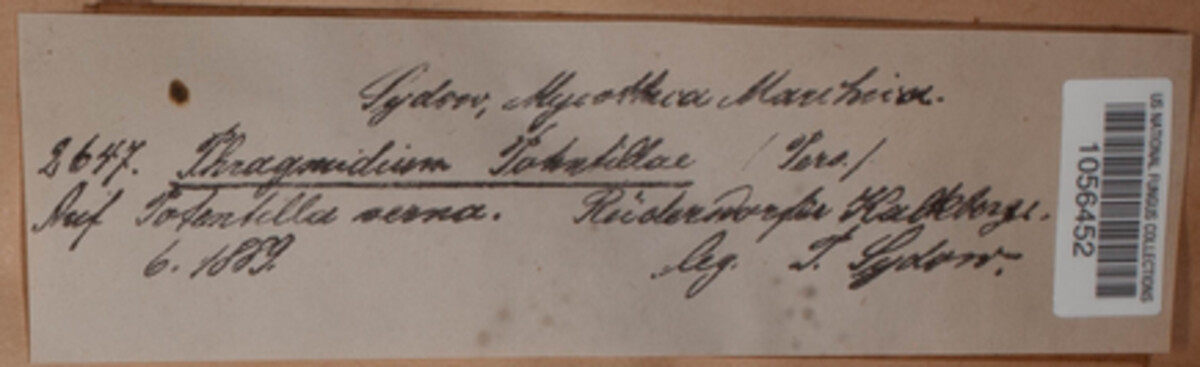 Sydow, Mycotheca Marchica.
2647. Phragmidium Potentillae (Pers.)
Auf Potentilla verna. Rüdersdorfer Kalkberge.
6. 1889. leg. P. Sydow.
US NATIONAL FUNGUS COLLECTIONS
1056452